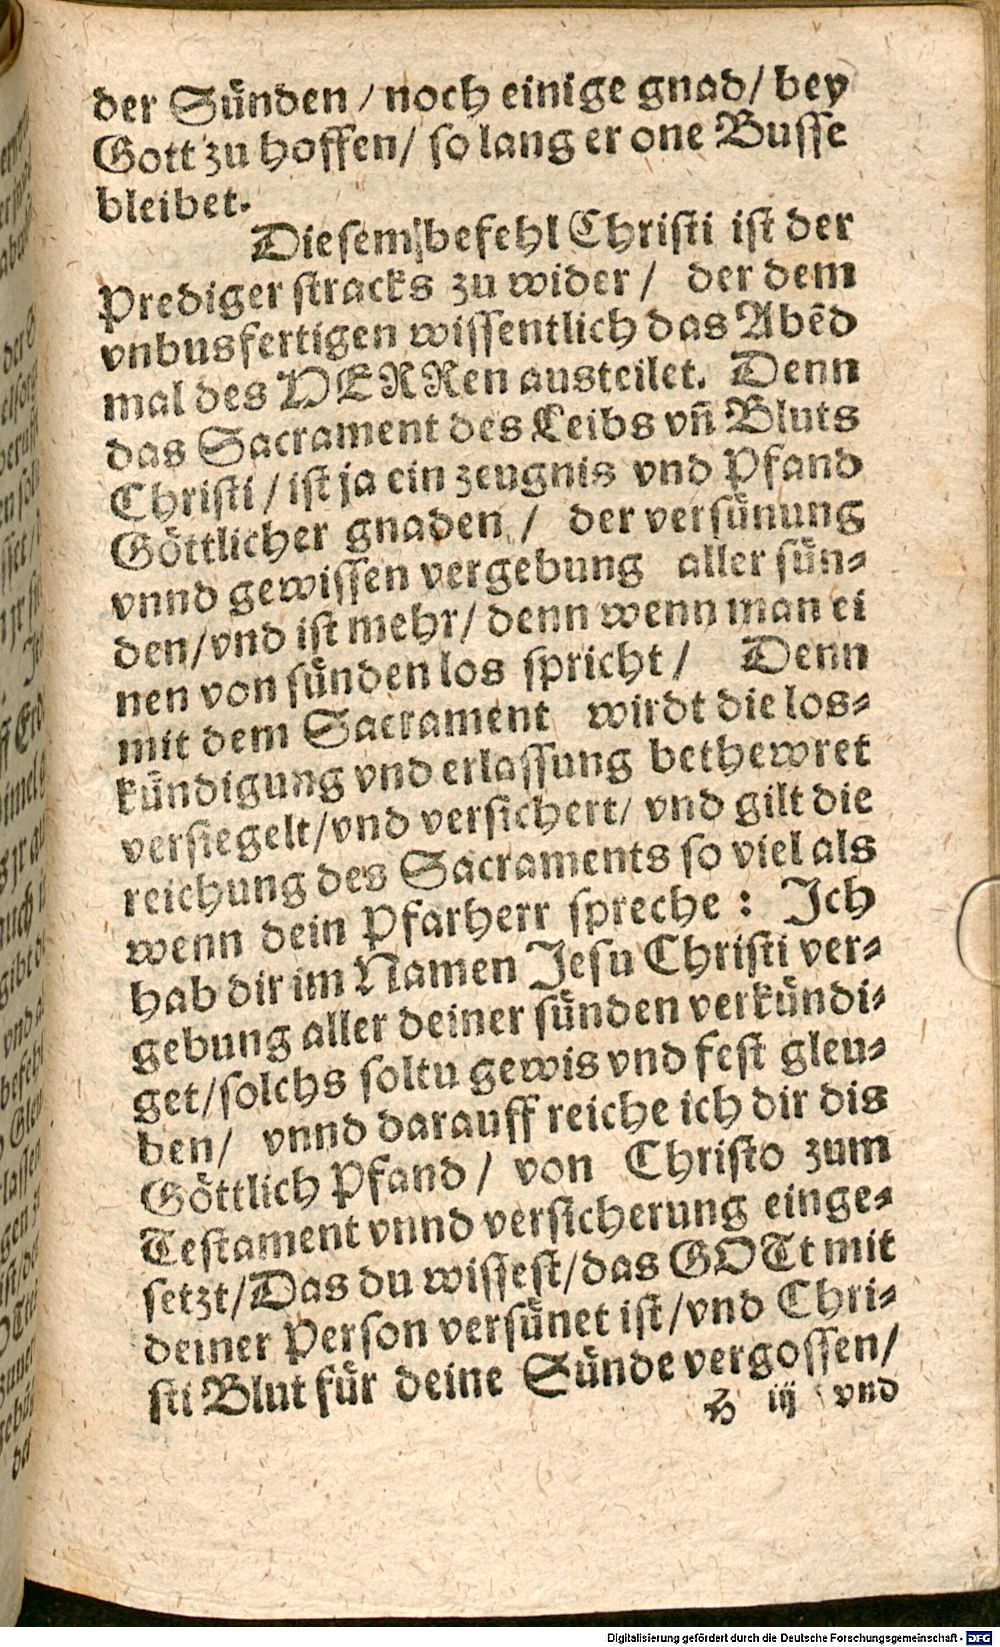 der Sünden / noch einige gnad / bey
Gott zu hoffen / so lang er one Busse
bleibet.
Diesem befehl Christi ist der
Prediger stracks zu wider / der dem
vnbusfertigen wissentlich das Abẽd
mal des HERRen austeilet. Denn
das Sacrament des Leibs vñ Bluts
Christi / ist ja ein zeugnis vnd Pfand
Göttlicher gnaden / der versünung
vnnd gewissen vergebung aller sün-
den / vnd ist mehr / denn wenn man ei
nen von sünden los spricht / Denn
mit dem Sacrament wirdt die los-
kündigung vnd erlassung bethewret
versiegelt / vnd versichert / vnd gilt die
reichung des Sacraments so viel als
wenn dein Pfarherr spreche : Ich
hab dir im Namen Jesu Christi ver-
gebung aller deiner sünden verkündi-
get / solchs soltu gewis vnd fest gleu-
ben / vnnd darauff reiche ich dir dis
Göttlich Pfand / von Christo zum
Testament vnnd versicherung einge-
setzt / Das du wissest / das GOTt mit
deiner Person versünet ist / vnd Chri-
sti Blut für deine Sünde vergossen /
H iij vnd
Digitalisierung gefördert durch die Deutsche Forschungsgemeinschaft - DFG